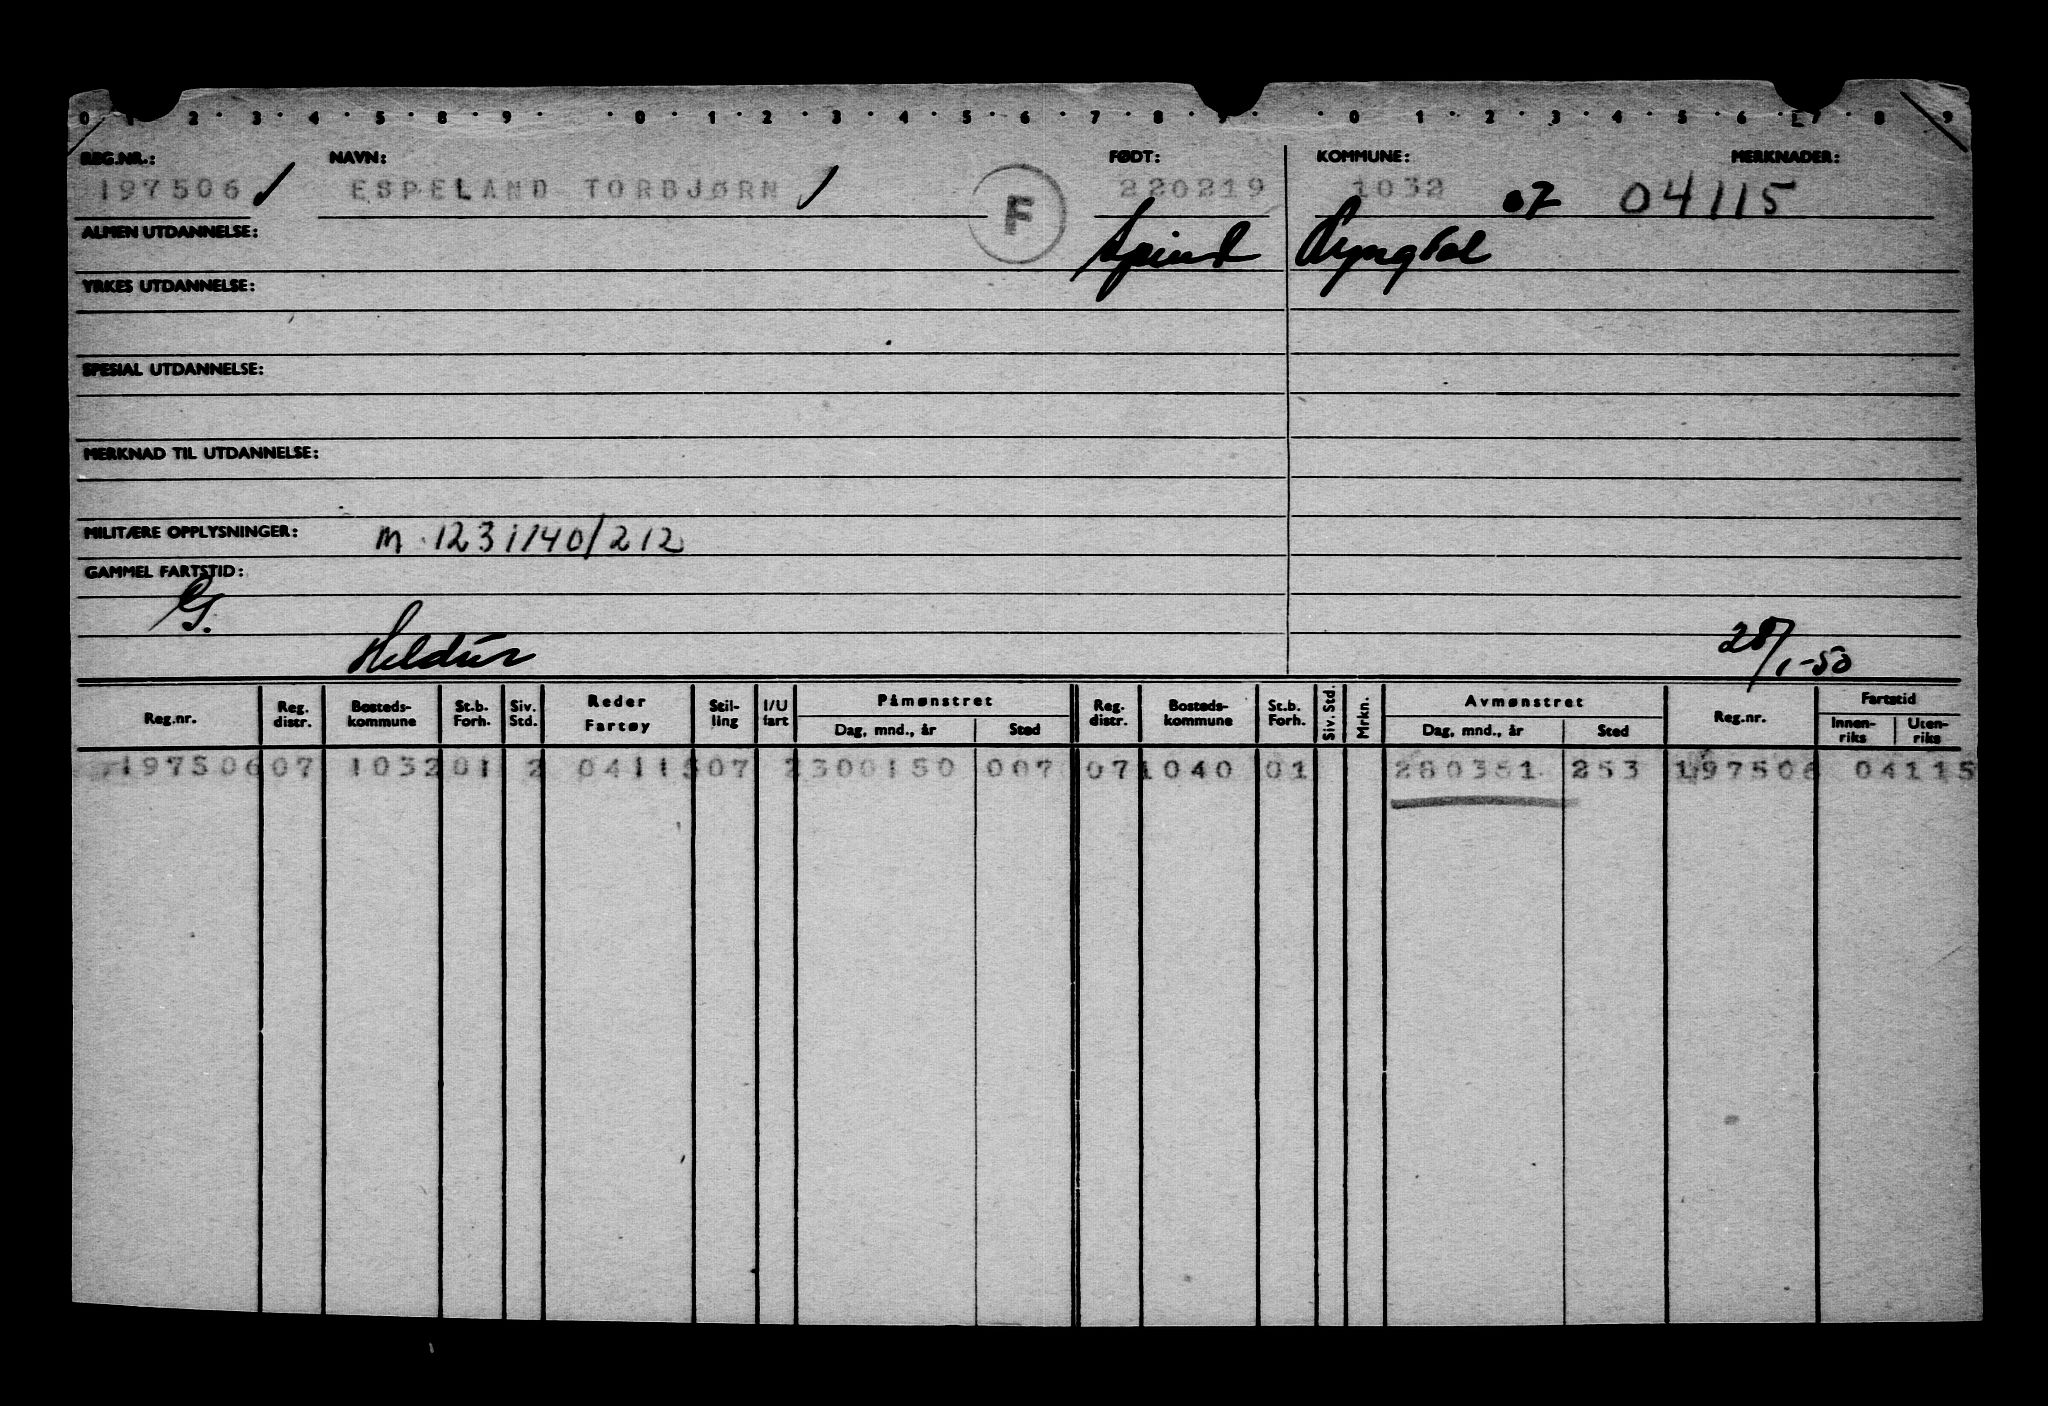 0 1 2 · 3 · 4 · 5 · 8 · 9 · · 0 · 1 · 2 · 3 · 4 · 5 · 6 · 7 · 8 · 9 · · 0 · 1 · 2 · 3 · 4 · 5 · 6 · 7 · 8 · 9
REG.NR.: NAVN: FØDT: KOMMUNE: MERKNADER:
197506 ESPELAND TORBJØRN F 220219 1032 07 04115
ALMEN UTDANNELSE: Spind Lyngdal
YRKES UTDANNELSE:
SPESIAL UTDANNELSE:
MERKNAD TIL UTDANNELSE:
MILITÆRE OPPLYSNINGER: m. 1231/40/212
GAMMEL FARTSTID:
G.
Heldur 28/1-50
Reg.nr. Reg. distr. Bosteds-kommune St.b. Forh. Siv. Std. Reder Fartøy Stil-ling I/U fart Påmønstret Dag, mnd., år Sted Reg. distr. Bosteds-kommune St.b. Forh. Siv. Std. Mrkn. Avmønstret Dag, mnd., år Sted Reg.nr. Fartstid Innen-riks Uten-riks
197506 07 1032 01 2 04115 07 2 300150 007 07 1040 01 280351 253 197506 04115